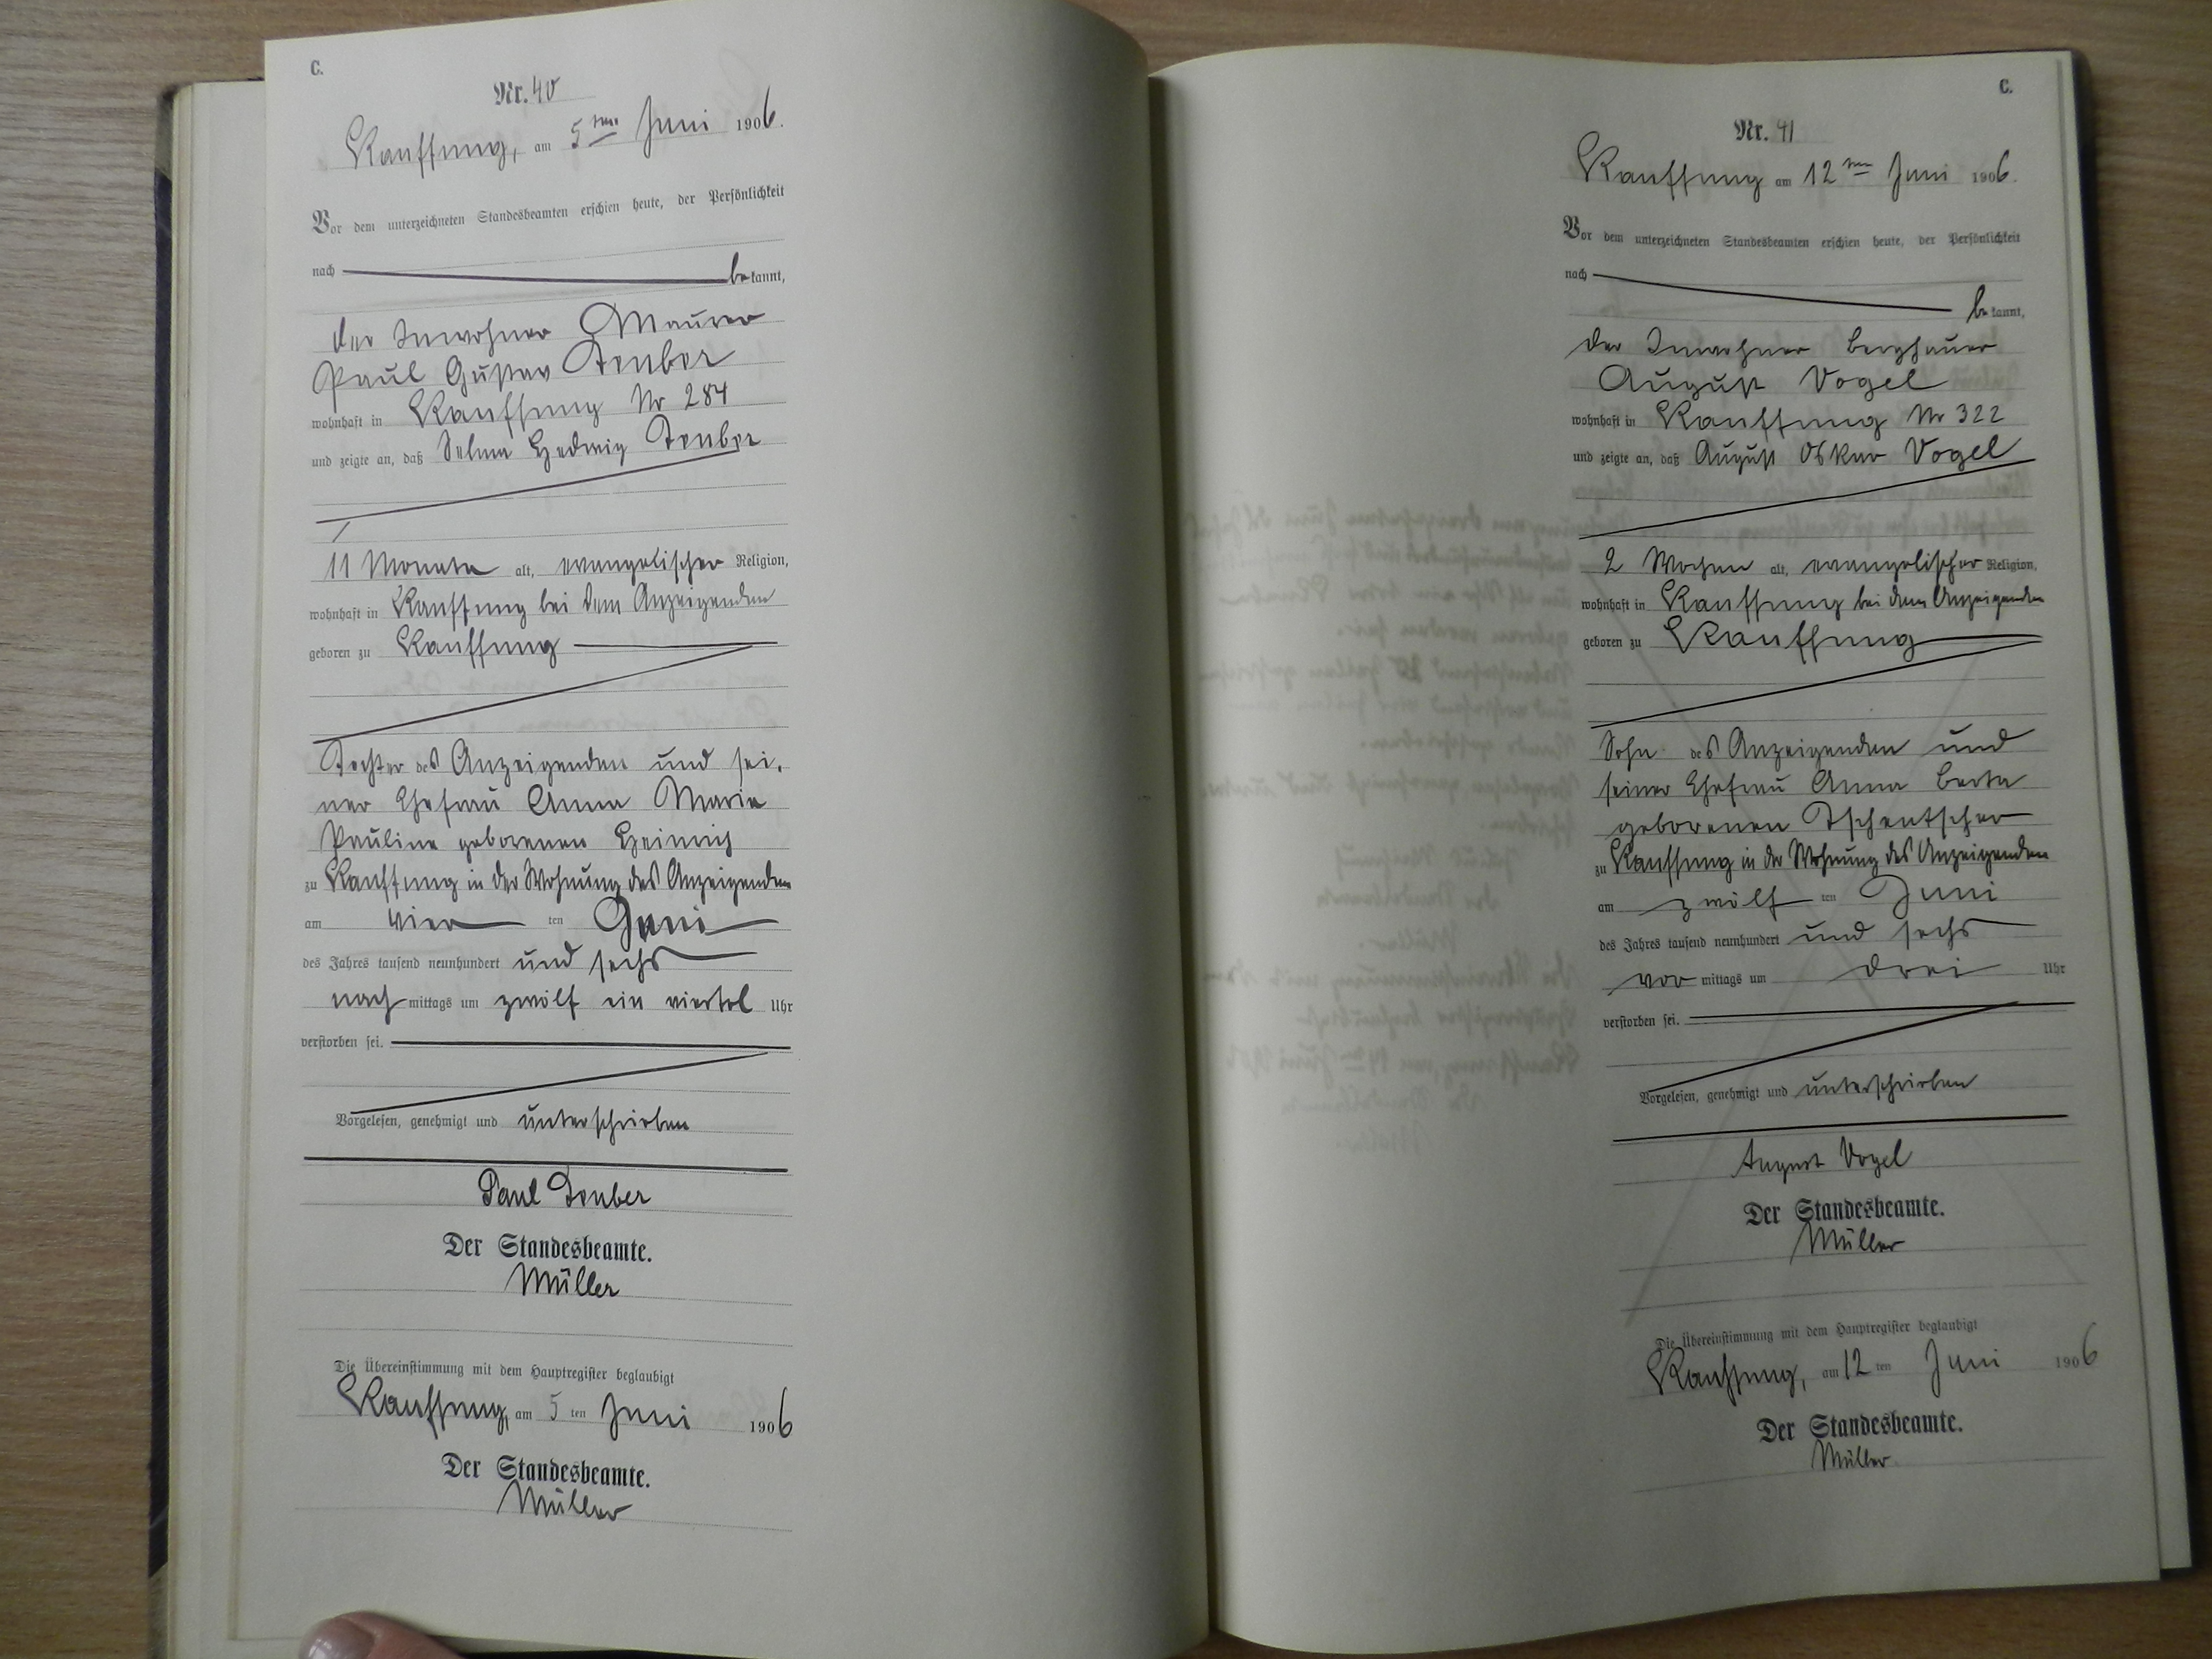 C.
Nr. 40
Kauffung, am 5ten Juni 1906.
Vor dem unterzeichneten Standesbeamten erschien heute, der Persönlichkeit
nach bekannt,
der Inwohner Maurer
Paul Gustav Teuber
wohnhaft in Kauffung Nr 284
und zeigte an, daß Selma Hedwig Teuber
11 Monate alt, evangelischer Religion,
wohnhaft in Kauffung bei dem Anzeigenden
geboren zu Kauffung
Tochter des Anzeigenden und sei-
ner Ehefrau Anna Marie
Pauline geborenen Heinrich
zu Kauffung in der Wohnung des Anzeigenden
am vier ten Juni
des Jahres tausend neunhundert und sechs
nach mittags um zwölf ein viertel Uhr
verstorben sei.
Vorgelesen, genehmigt und unterschrieben
Paul Teuber
Der Standesbeamte.
Müller
Die Übereinstimmung mit dem Hauptregister beglaubigt
Kauffung, am 5 ten Juni 1906
Der Standesbeamte.
Müller
C.
Nr. 41
Kauffung am 12ten Juni 1906.
Vor dem unterzeichneten Standesbeamten erschien heute, der Persönlichkeit
nach bekannt,
der Inwohner Berghauer
August Vogel
wohnhaft in Kauffung Nr 322
und zeigte an, daß August Oskar Vogel
2 Wochen alt, evangelischer Religion,
wohnhaft in Kauffung bei dem Anzeigenden
geboren zu Kauffung
Sohn des Anzeigenden und
seiner Ehefrau Anna Berta
geborenen Tschentscher
zu Kauffung in der Wohnung des Anzeigenden
am zwölf ten Juni
des Jahres tausend neunhundert und sechs
vor mittags um drei Uhr
verstorben sei.
Vorgelesen, genehmigt und unterschrieben
August Vogel
Der Standesbeamte.
Müller
Die Übereinstimmung mit dem Hauptregister beglaubigt
Kauffung, am 12 ten Juni 1906
Der Standesbeamte.
Müller